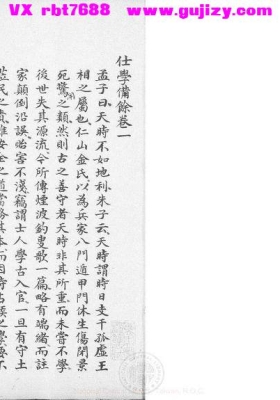 VX rbt7688 www.gujizy.com
仕學備餘卷一
孟子曰天時不如地利朱子云天時謂時日支干孤虛王
相之屬也仁山金氏以為兵家八門遁甲門休生傷閉景
死驚之類然則古之善守者天時非其所重而未嘗不學
後世失其源流今所傳煙波釣叟歌一篇略有端緒而註
家顛倒沿誤貽害不淺竊謂士人學古入官一旦有守土